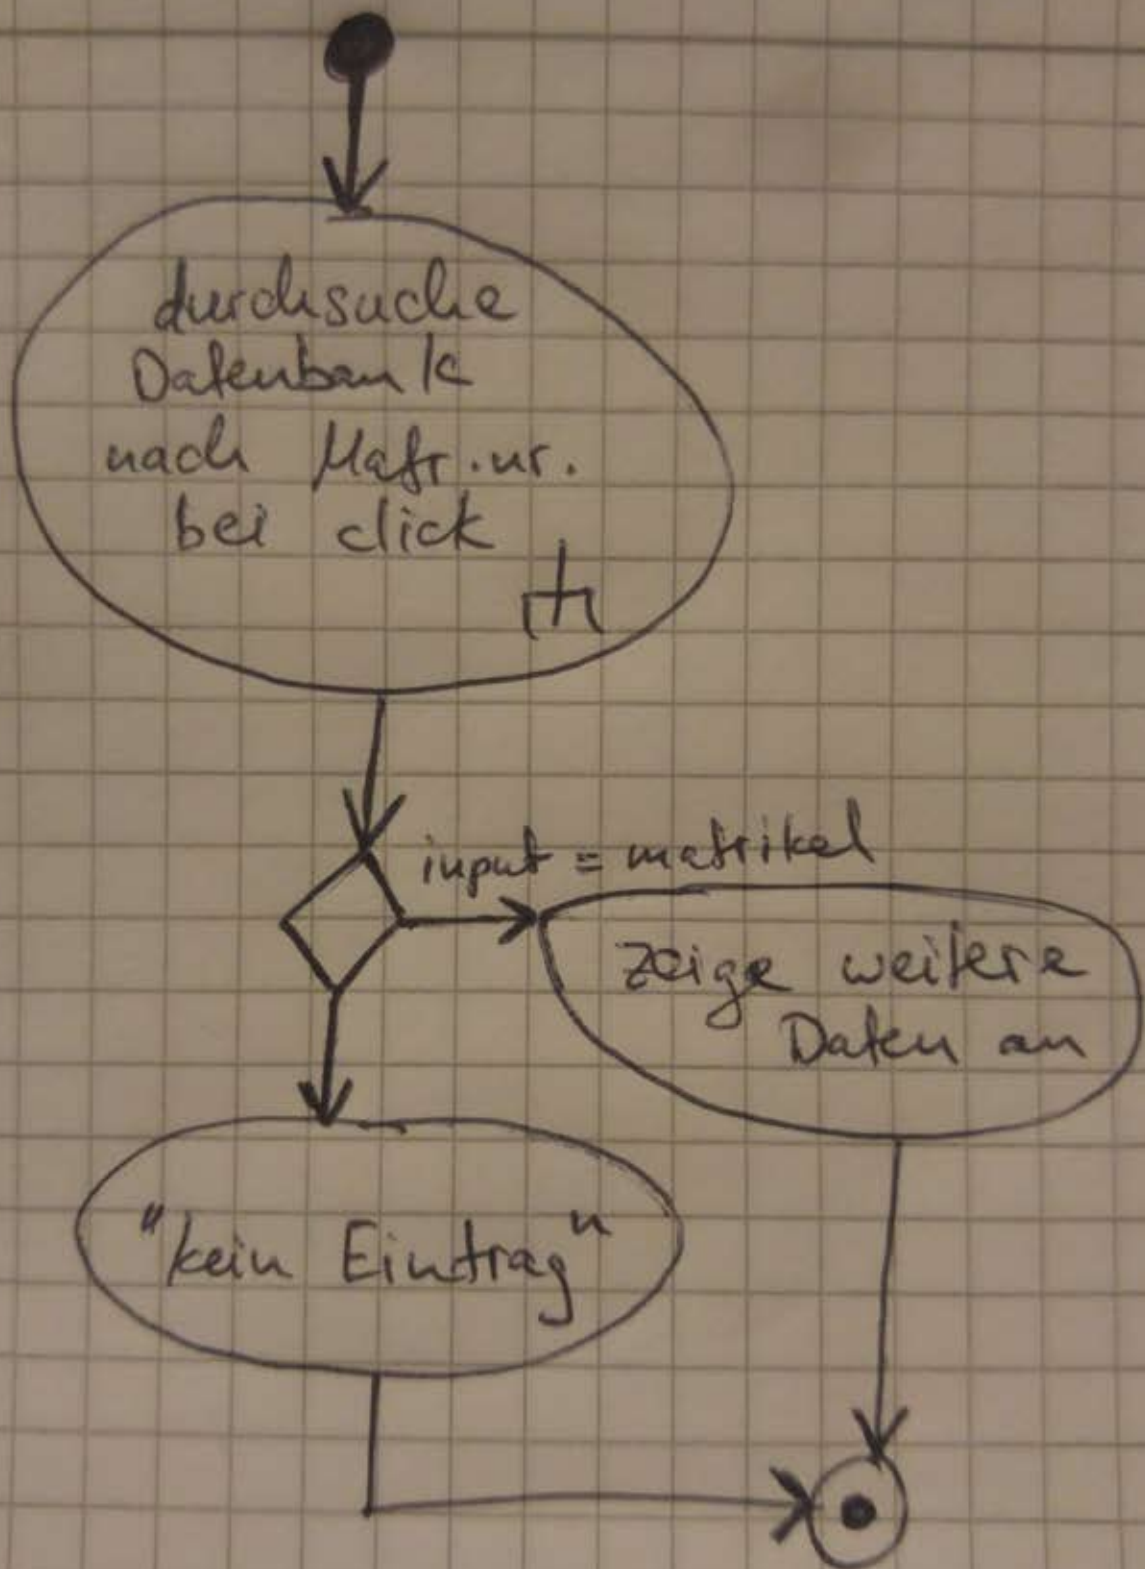 durchsuche
Datenbank
nach Matr.nr.
bei click
input = matrikel
zeige weitere
Daten an
"kein Eintrag"